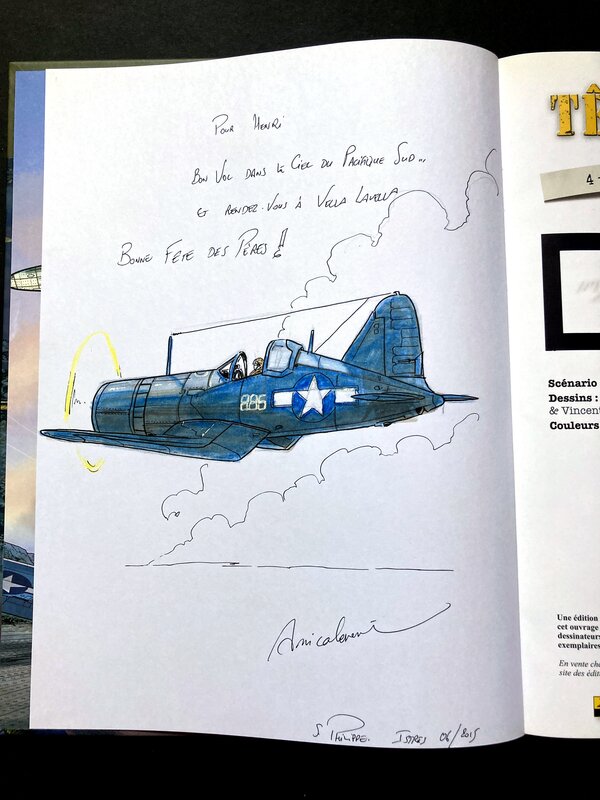 Pour Henri
Bon Vol dans le Ciel du Pacifique Sud...
et rendez-vous à Vella Lavella
Bonne Fete des Pères !
886
Amicalement
S Philippe. Istres 06/2015
TÊ
4 -
Scénario
Dessins :
& Vincent
Couleurs
Une édition
cet ouvrage
dessinateurs
exemplaires
En vente che
site des édit